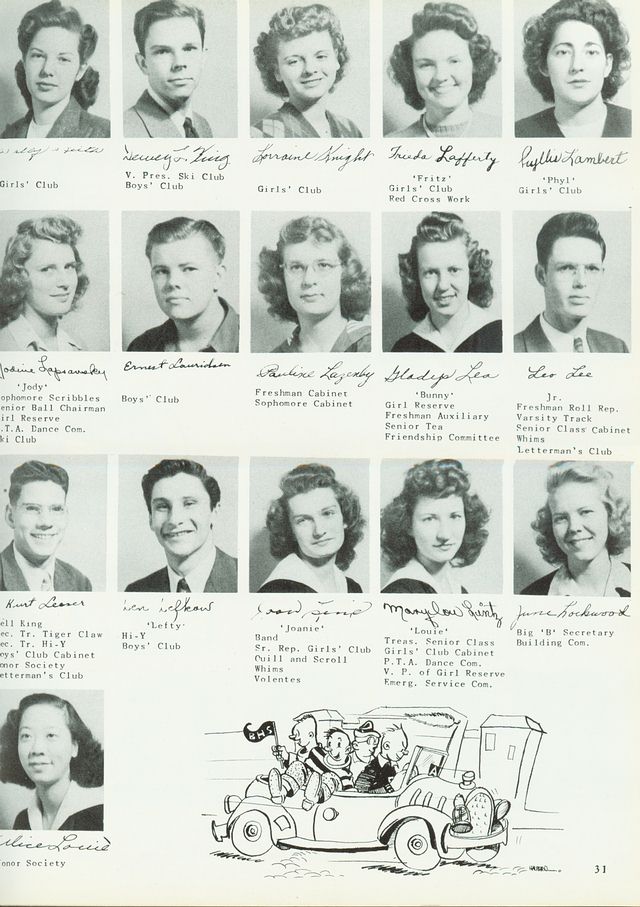 Dewey L. King
V. Pres. Ski Club
Boys' Club
Lorraine Knight
Girls' Club
Frieda Lafferty
'Fritz'
Girls' Club
Red Cross Work
Phyllis Lambert
'Phyl'
Girls' Club
Girls' Club
'Jody'
ophomore Scribbles
enior Ball Chairman
irl Reserve
.T.A. Dance Com.
ki Club
Ernest Lauridsen
Boys' Club
Pauline Lazenby
Freshman Cabinet
Sophomore Cabinet
Gladys Lea
'Bunny'
Girl Reserve
Freshman Auxiliary
Senior Tea
Friendship Committee
Leo Lee
Jr.
Freshman Roll Rep.
Varsity Track
Senior Class Cabinet
Whims
Letterman's Club
Kurt Lesser
ell King
ec. Tr. Tiger Claw
ec. Tr. Hi-Y
oys' Club Cabinet
onor Society
etterman's Club
Len Lefkow
'Lefty'
Hi-Y
Boys' Club
'Joanie'
Band
Sr. Rep. Girls' Club
Quill and Scroll
Whims
Volentes
Marylou Lintz
'Louie'
Treas. Senior Class
Girls' Club Cabinet
P.T.A. Dance Com.
V. P. of Girl Reserve
Emerg. Service Com.
June Lockwood
Big 'B' Secretary
Building Com.
Alice Louie
onor Society
BHS
A
31